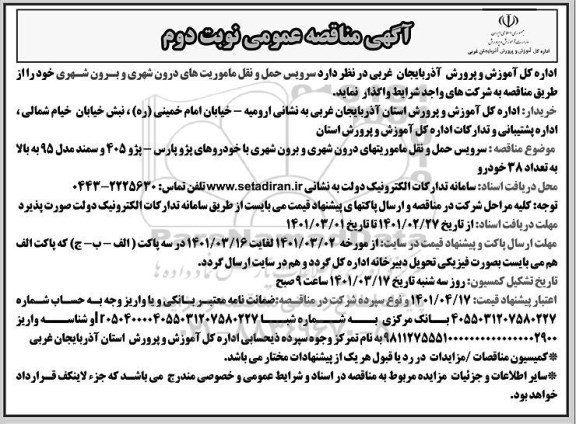 جمهوری اسلامی ایران
وزارت آموزش و پرورش
اداره کل آموزش و پرورش آذربایجان غربی
آگهی مناقصه عمومی نوبت دوم
اداره کل آموزش و پرورش آذربایجان غربی در نظر دارد سرویس حمل و نقل ماموریت های درون شهری و برون شهری خود را از
طریق مناقصه به شرکت های واجد شرایط واگذار نماید.
خریدار: اداره کل آموزش و پرورش استان آذربایجان غربی به نشانی ارومیه - خیابان امام خمینی (ره) ، نبش خیابان خیام شمالی ،
اداره پشتیبانی و تدارکات اداره کل آموزش و پرورش استان
موضوع مناقصه : سرویس حمل و نقل ماموریتهای درون شهری و برون شهری با خودروهای پژو پارس - پژو ۴۰۵ و سمند مدل ۹۵ به بالا
به تعداد ۳۸ خودرو
محل دریافت اسناد: سامانه تدارکات الکترونیک دولت به نشانی www.setadiran.ir تلفن تماس: ۲۲۲۵۶۳۰-۰۴۴۳
توجه: کلیه مراحل شرکت در مناقصه و ارسال پاکتهای پیشنهاد قیمت می بایست از طریق سامانه تدارکات الکترونیک دولت صورت پذیرد
مهلت دریافت اسناد: از تاریخ ۱۴۰۱/۰۲/۲۷ تا تاریخ ۱۴۰۱/۰۳/۰۱
مهلت ارسال پاکت و پیشنهاد قیمت در سایت: از مورخه ۱۴۰۱/۰۳/۰۲ لغایت ۱۴۰۱/۰۳/۱۶ در سه پاکت ( الف - ب - ج) که پاکت الف
هم می بایست بصورت فیزیکی تحویل دبیرخانه اداره کل گردد و هم در سایت ارسال گردد.
تاریخ تشکیل کمسیون: روز سه شنبه تاریخ ۱۴۰۱/۰۳/۱۷ ساعت ۹ صبح
اعتبار پیشنهاد قیمت: ۱۴۰۱/۰۴/۱۷ و نوع سپرده شرکت در مناقصه :ضمانت نامه معتبر بانکی و یا واریز وجه به حساب شماره
۴۰۵۵۰۳۱۲۰۷۵۸۰۲۲۷ بانک مرکزی به شماره شبا
او شناسه واریز
به نام تمرکز وجوه سپرده ذیحسابی اداره کل آموزش و پرورش استان آذربایجان غربی
*کمیسیون مناقصات /مزایدات در رد یا قبول هر یک از پیشنهادات مختار می باشد.
*سایر اطلاعات و جزئیات مزایده مربوط به مناقصه در اسناد و شرایط عمومی و خصوصی مندرج می باشد که جزء لاینکف قرارداد
خواهد بود.